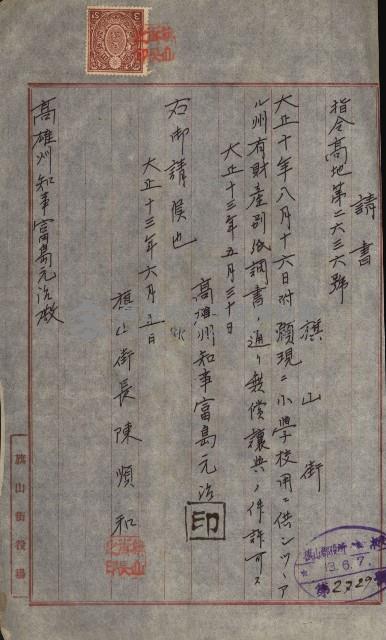 請書
指令高地第二六三六號
旗山街
大正十年八月十六日附願現ニ小學校用ニ供シツヽア
ル州有財産別紙調書ノ通リ無償讓與ノ件許可ス
大正十三年五月三十日
高雄州知事富島元治
印
右御請候也
大正十三年六月五日
旗山街長陳順和
高雄州知事富島元治殿
旗山街役場
13.6.7
第2729號